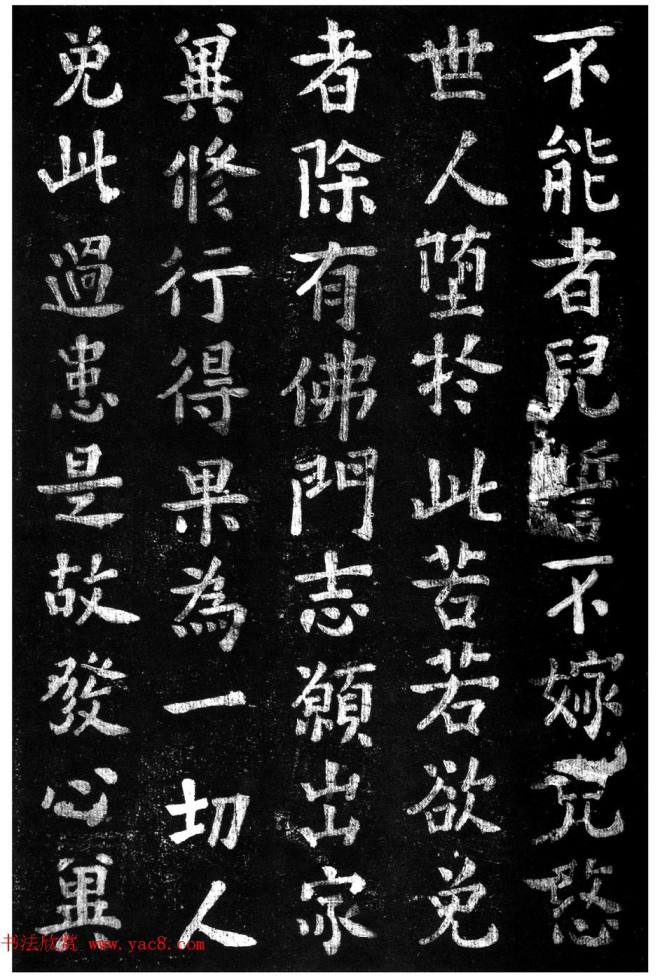 不能者兒誓不嫁兒愍
世人墮於此苦若欲免
者除有佛門志願出家
兾修行得果為一切人
免此過患是故發心兾
书法欣赏 www.yac8.com